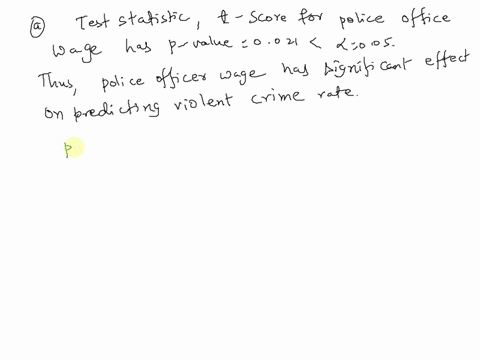 (a) Test statistic, t-score for police office
wage has p-value = 0.021 < α=0.05.
Thus, police officer wage has significant effect
on predicting violent crime rate.
p